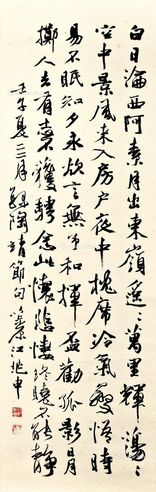 白日淪西阿素月出東嶺遙〻萬里輝蕩〻
空中景風来入房戶夜中枕席冷氣變悟時
易不眠知夕永欲言無予和揮盃勸孤影日月
擲人去有志不獲騁念此懷悲悽終曉不能靜
壬子夏三月 陶靖節句 江兆申